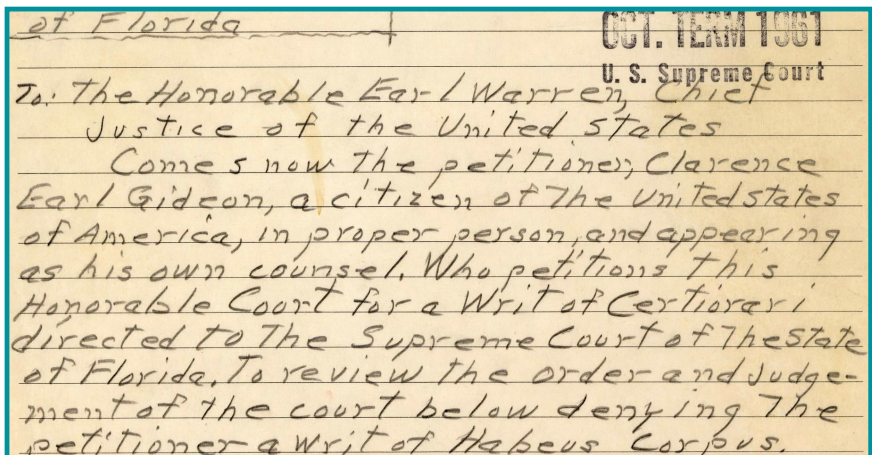 of Florida
OCT. TERM 1961
U. S. Supreme Court
To: The Honorable Earl Warren, Chief
Justice of the United States
Comes now the petitioner, Clarence
Earl Gideon, a citizen of The United states
of America, in proper person, and appearing
as his own counsel. Who petitions this
Honorable Court for a Writ of Certiorari
directed to The Supreme Court of The State
of Florida. To review the order and Judge-
ment of the court below denying The
petitioner a writ of Habeus Corpus.